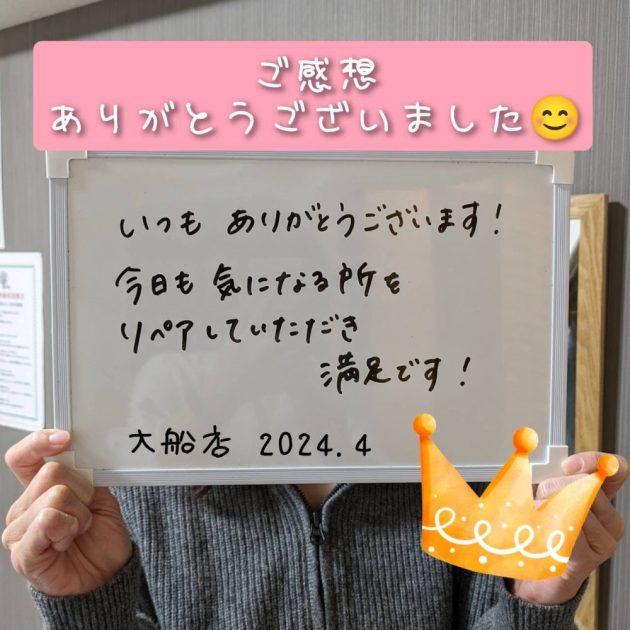 ご感想
ありがとうございました😊
いつも ありがとうございます!
今日も 気になる所を
リペアしていただき
満足です!
大船店 2024.4